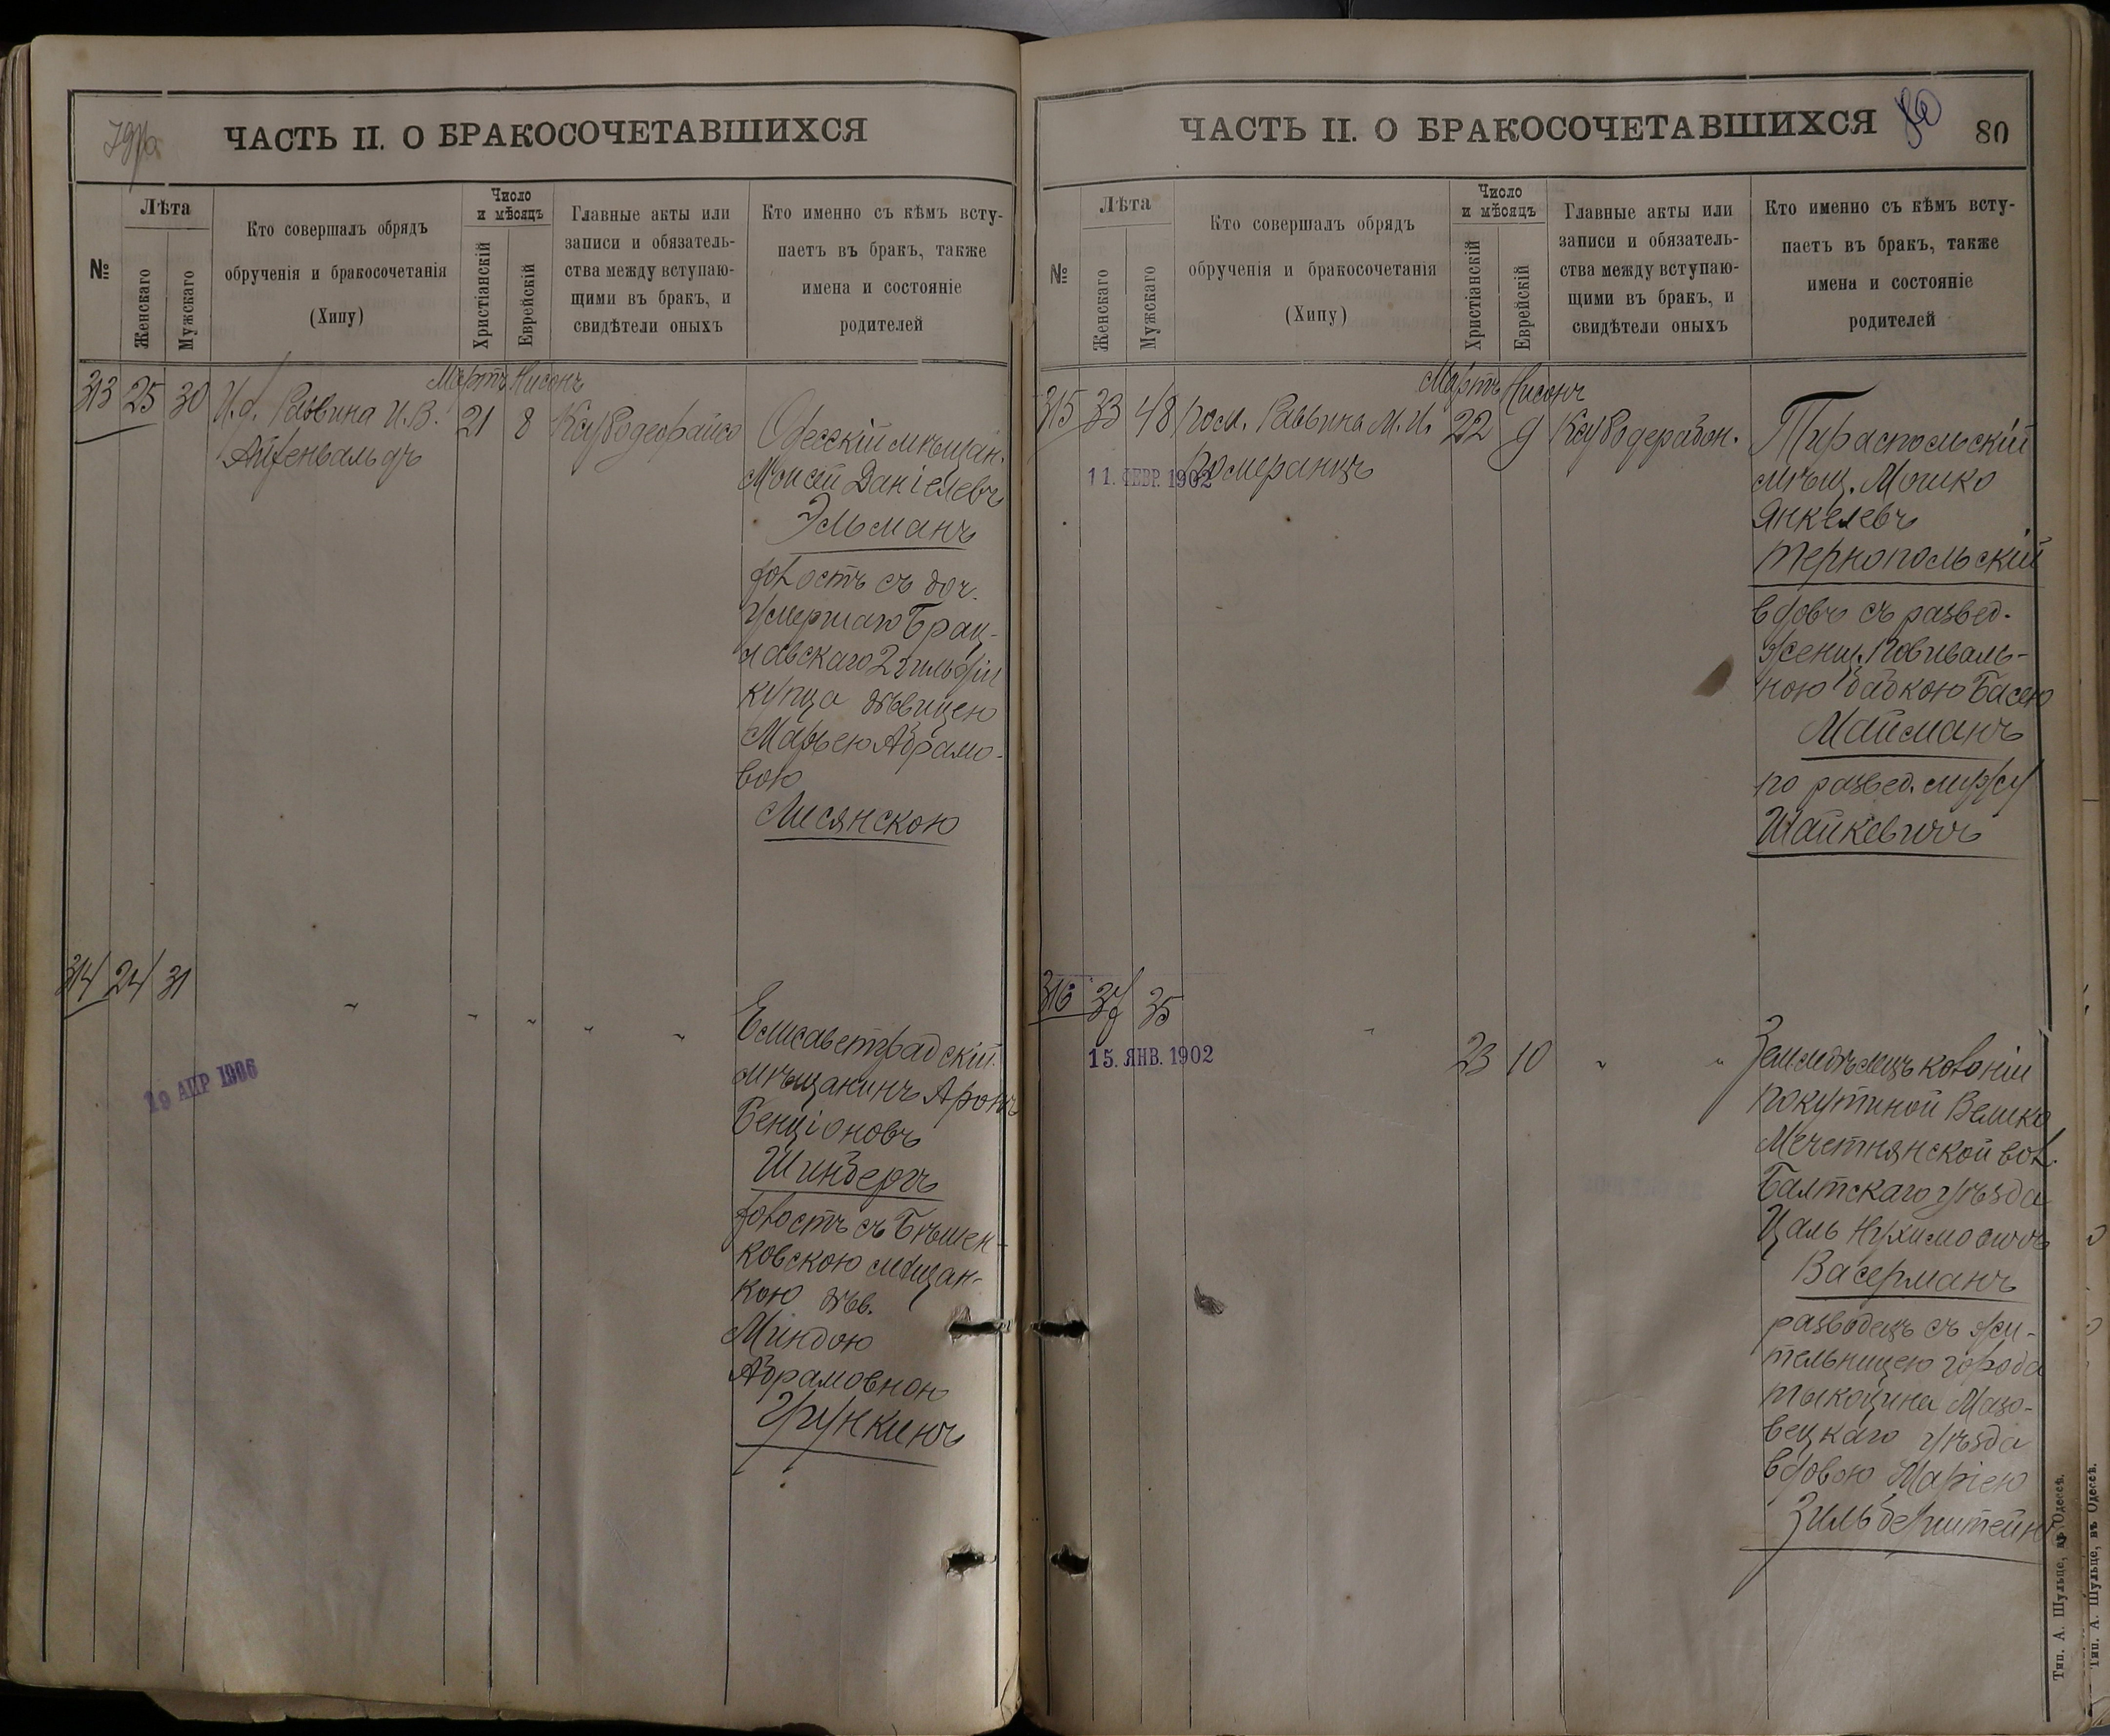 79/а
ЧАСТЬ II. О БРАКОСОЧЕТАВШИХСЯ
№
Лѣта
Женскаго
Мужскаго
Кто совершалъ обрядъ
обрученія и бракосочетанія
(Хипу)
Число
и мѣсяцъ
Христіанскій
Еврейскій
Главные акты или
записи и обязатель-
ства между вступаю-
щими въ бракъ, и
свидѣтели оныхъ
Кто именно съ кѣмъ всту-
паетъ въ бракъ, также
имена и состояніе
родителей
Мартъ Нисонъ
313 25 30 И.д. Раввина И.В. 21 8
Айхенвальдъ
Одесскій мѣщан.
Моисей Даніелевъ
Эльманъ
холостъ съ доч.
умершаго Брац-
лавскаго 2 гильдіи
купца дѣвицею
Марьею Абрамо-
вою
Лисянскою
314 24 31 " " " " "
19 АПР 1906
Елисаветградскій
мѣщанинъ Аронъ
Бенціоновъ
Шинбергъ
холостъ съ Бѣшен-
ковскою мѣщан-
кою дѣв.
Миндою
Абрамовною
Грункинъ
ЧАСТЬ II. О БРАКОСОЧЕТАВШИХСЯ
80
80
№
Лѣта
Женскаго
Мужскаго
Кто совершалъ обрядъ
обрученія и бракосочетанія
(Хипу)
Число
и мѣсяцъ
Христіанскій
Еврейскій
Главные акты или
записи и обязатель-
ства между вступаю-
щими въ бракъ, и
свидѣтели оныхъ
Кто именно съ кѣмъ всту-
паетъ въ бракъ, также
имена и состояніе
родителей
Мартъ Нисонъ
315 33 48 пом. Раввина М.И. 22 9 Ксубодерабон.
Померанцъ
11. ФЕВР. 1902
Тираспольскій
мѣщ. Мошко
Янкелевъ
Тернопольскій
вдовъ съ развед.
женщ. повиваль-
ною бабкою Басею
Майсманъ
по развед. мужу
Шайкевичъ
316 37 35 " 23 10 " "
15. ЯНВ. 1902
Земледѣлецъ колоніи
Покутиной Велико
Мечетнянской вол.
Балтскаго уѣзда
Цаль Нухимовичъ
Васерманъ
разводецъ съ жи-
тельницею города
Тыкоцина Мазо-
вецкаго уѣзда
вдовою Маріею
Зильберштейнъ
Тип. А. Шульце, въ Одессѣ.
Тип. А. Шульце, въ Одессѣ.